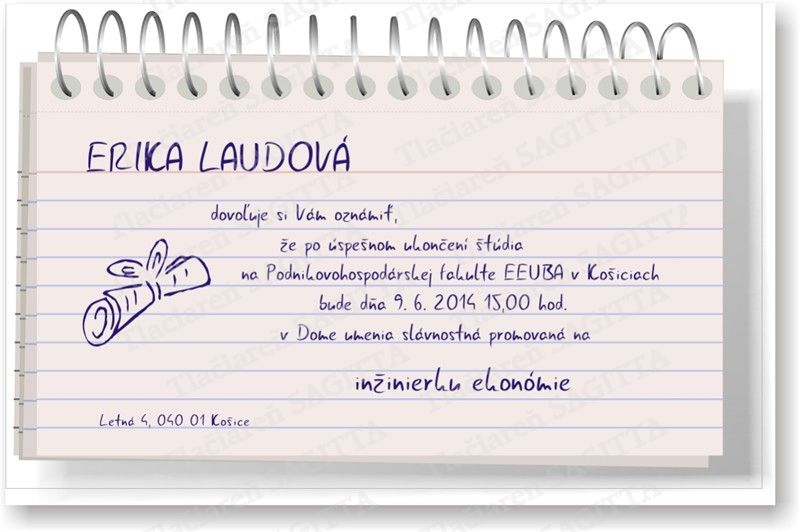 ERIKA LAUDOVÁ
dovoľuje si Vám oznámiť,
že po úspešnom ukončení štúdia
na Podnikovohospodárskej fakulte EEUBA v Košiciach
bude dňa 9. 6. 2014 15,00 hod.
v Dome umenia slávnostná promovaná na
inžinierku ekonómie
Letná 4, 040 01 Košice
Tlačiareň SAGITTA